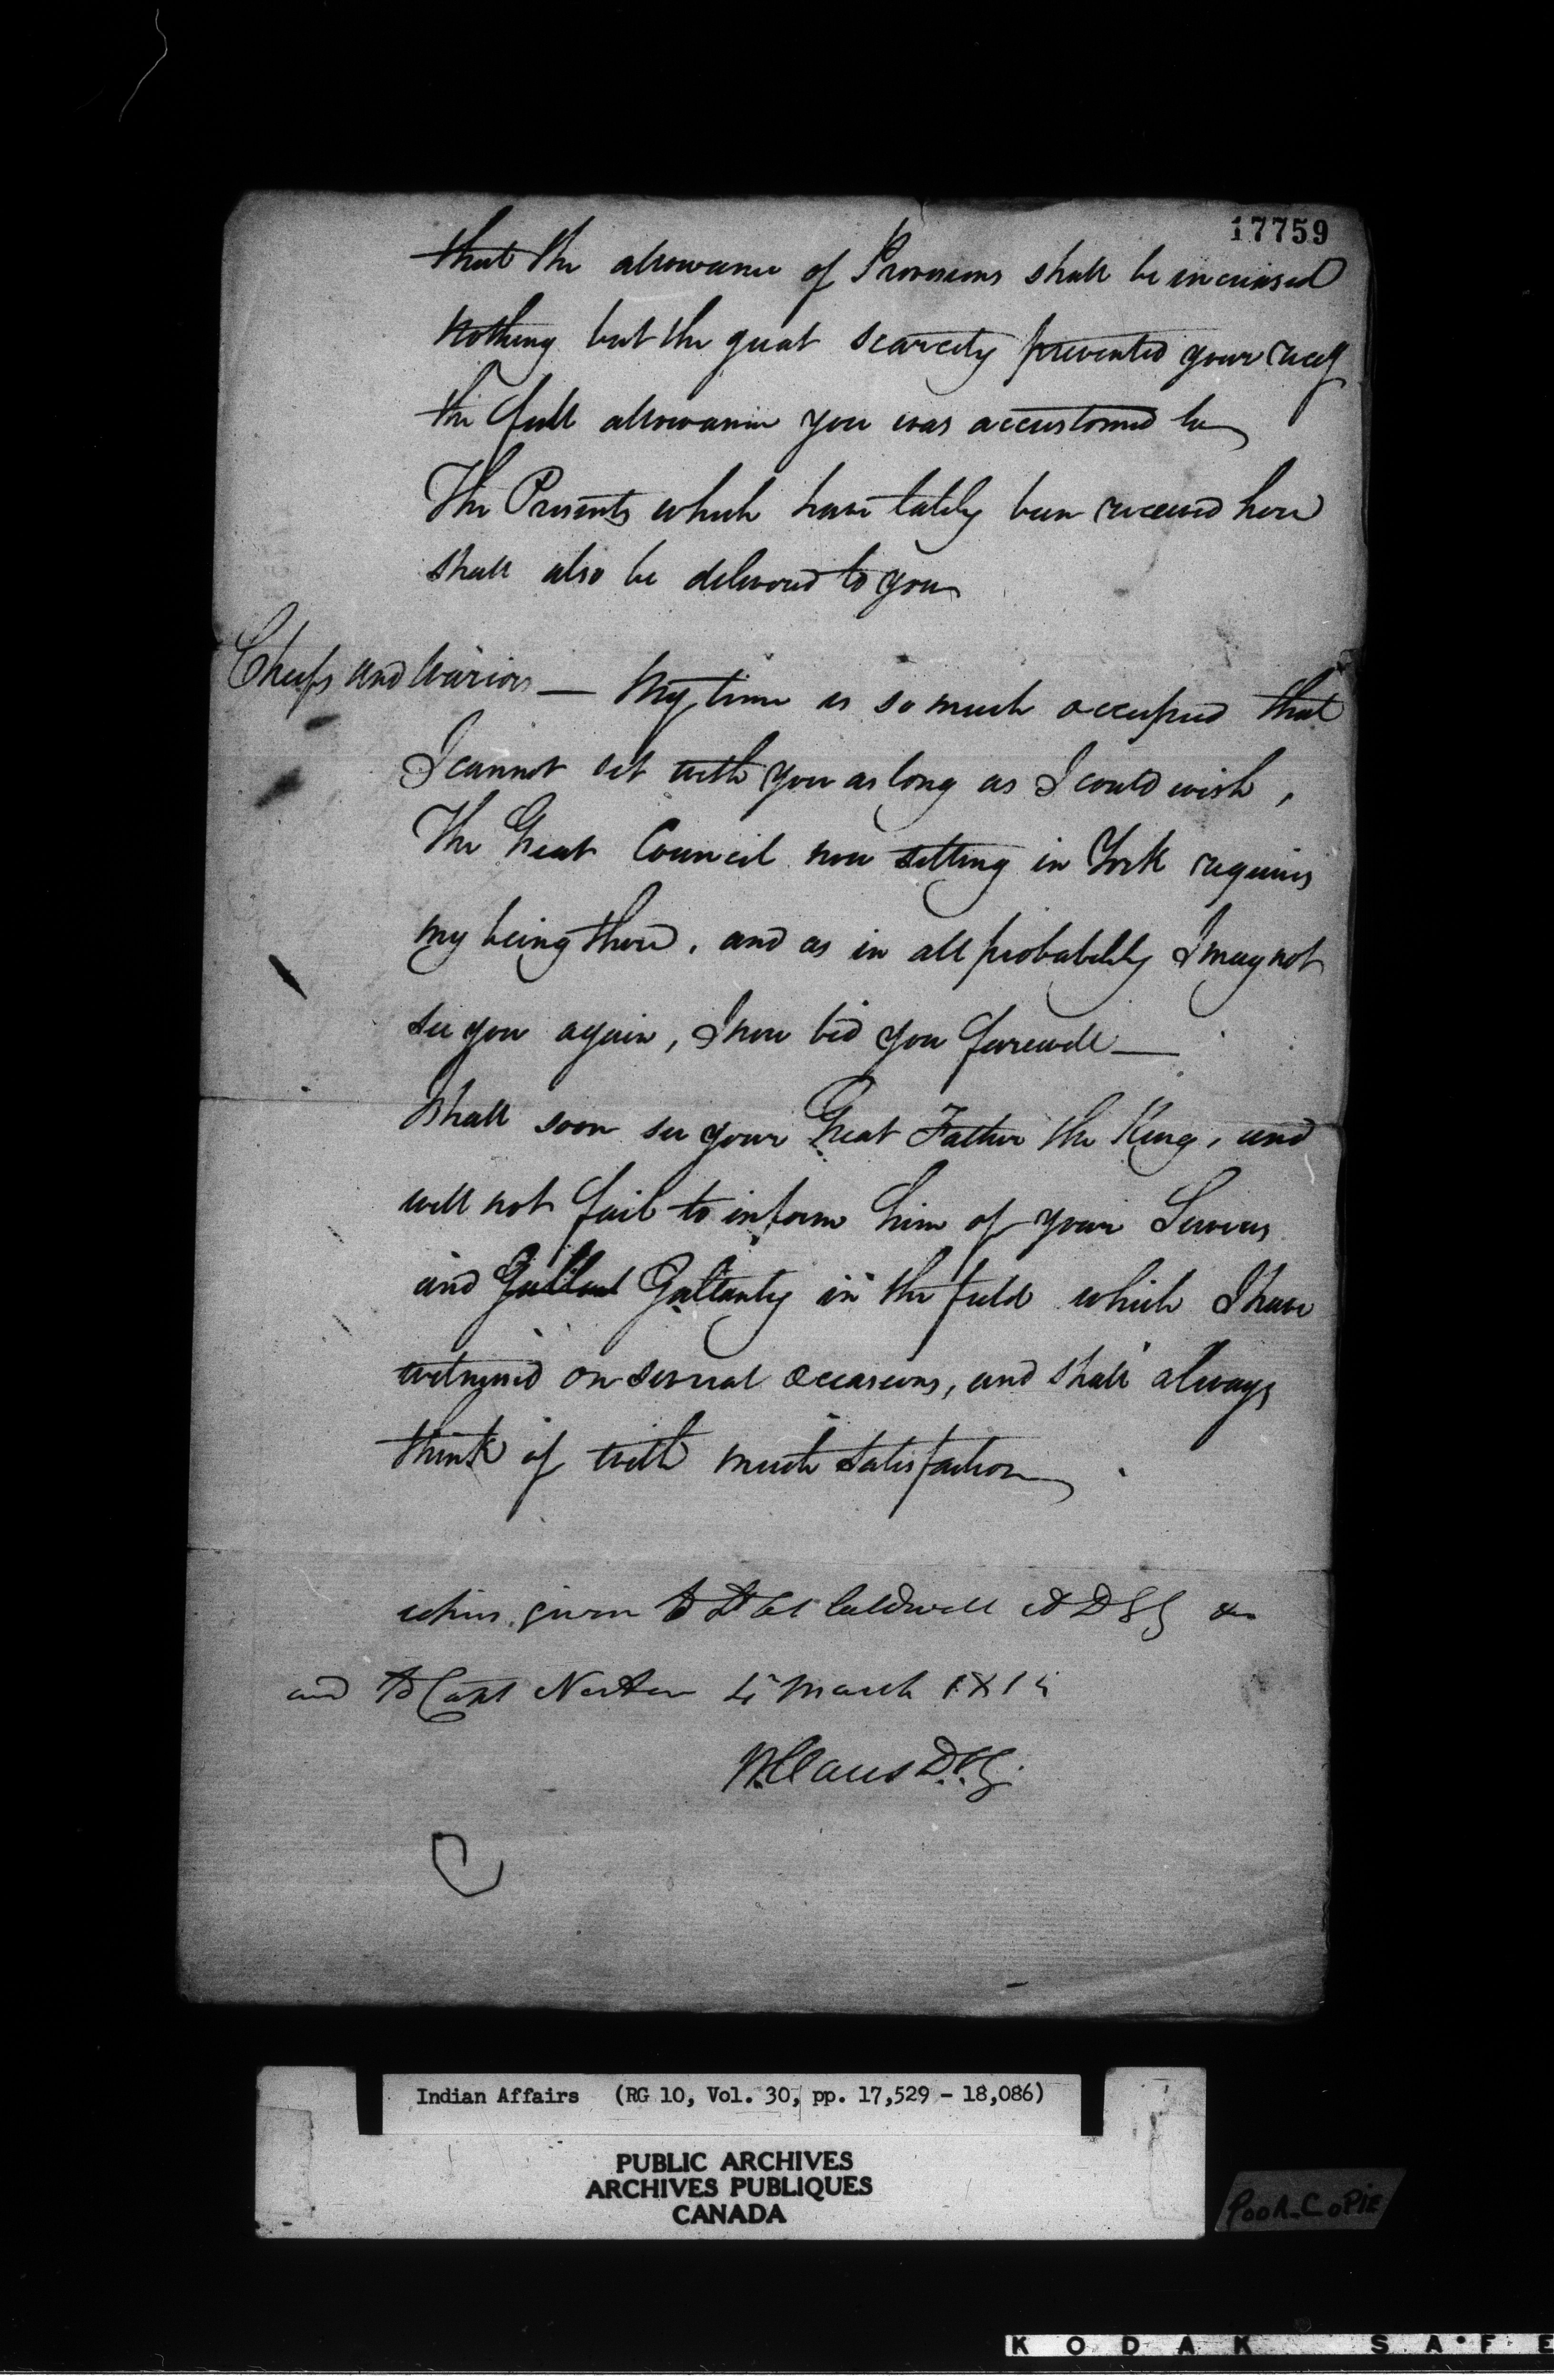 17759
that the allowance of Provisions shall be increased
nothing but the great scarcity prevented your recg
the full allowance you was accustomed to
The Presents which have lately been received here
shall also be delivered to you
Chiefs and Wariors — My time is so much occupied that
I cannot sit with you as long as I could wish,
The Great Council now setting in York requires
my being there, and as in all probability I may not
see you again, I now bid you farewell —
I shall soon see your Great Father the King, and
will not fail to inform him of your Services
and Gallant Gallantry in the field which I have
witnessed on several occasions, and shall always
think of with much satisfaction
given to Lt Col Caldwell &c
and to Capt Norton 4 March 1815
W Claus D.S.G.
Indian Affairs (RG 10, Vol. 30, pp. 17,529 - 18,086)
PUBLIC ARCHIVES
ARCHIVES PUBLIQUES
CANADA
POOR COPIE
KODAK SAFE